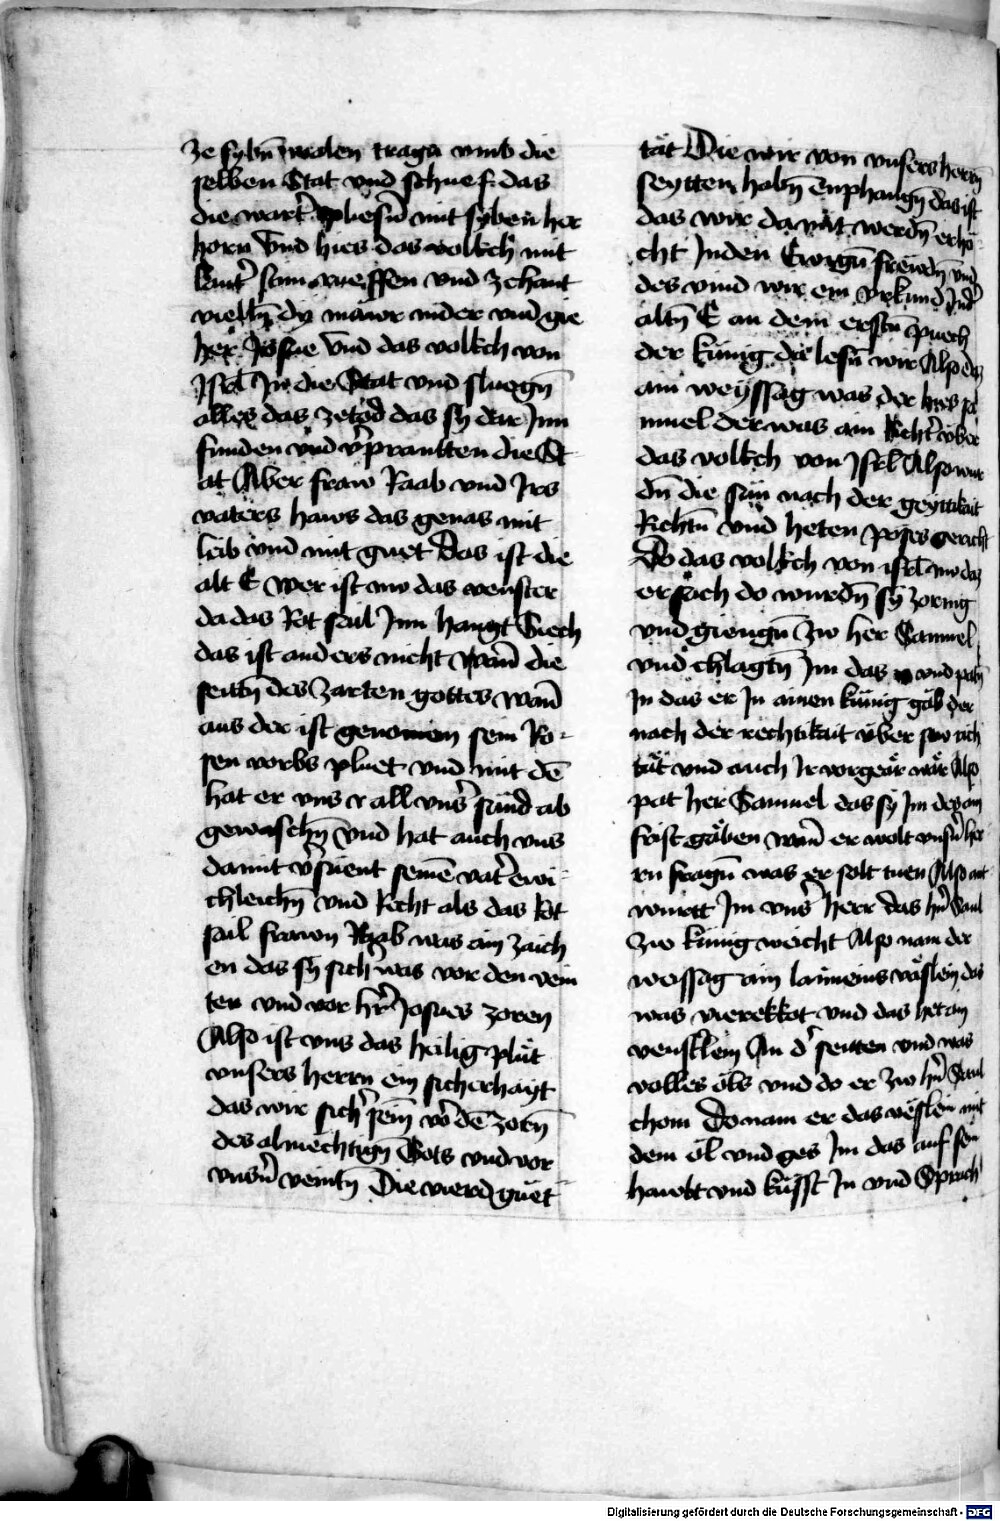 ze sybn̄ malen tragn vmb die
selben Stat vnd schuef das
die wart̄ pliesn̄ mit syben her
horn Vnd hies das volkch mit
laut̄ stim rueffen vnd zehant
vielln̄ dy mawr nider vnd gie
her Josue Vnd das volkch von
Isrl̄ In die Stat vnd sluegn̄
alles das zetod das sy dar Inn
funden vnd v̄prantten die St
at Aber fraw Raab vnd Irs
vaters haws das genas mit
leib vnd mit guet Das ist die
alt E Wer ist nw das venster
da das Rot sail Inn hangt Siech
das ist anders nicht Wan̄ die
seittn̄ des Zarten gottes wan̄
aus der ist genomen sein Ro-
sen vorbs pluet vnd mit dē
hat er vns all vns̄ sünd ab
gewaschn̄ Vnd hat auch vns
damit v̄suent seinē vat̄ ewi-
chleichn̄ vnd Recht als das Rot
sail frawn Raab was ain zaich
en das sy sich̄ was vor den vein
ten vnd vor hr̄ Josues zoren
Also ist vns das heilig plüt
vnsers herrn ein sicherhayt
das wir sich̄ sein̄ vō dē zorn̄
des almechtign̄ Gots vnd vor
vnsn̄ veintn̄ Die vierd guet
tät Die wir von vnsers herrn̄
seytten habn̄ enphangn̄ das ist
das wir da mit werdn̄ erho-
cht In den Ewign̄ frewdn̄ vnd
des vind wir ein vrkund In d̄
altn̄ E an dem erstn̄ puech
der künig da lesn̄ wir Also das
ain weyssag was der hies sa
muel der was ain Richt̄ vber
das volkch von Isrl̄ Also wur
dn̄ die sün nach der geyttikait
Richtn̄ vnd heten poses gericht
Do das volkch von isrl̄ nw das
ersach do wurdn̄ sy zornig
vnd giengn̄ Zw her Samuel
vnd chlagtn̄ Im das vnd patn̄
In das er In ainen künig gäb der
nach der rechtikait vber sew rich
tät vnd auch Ir vorgeär wär Also
pat her Samuel das sy Im des ain
frist gäben wan̄ er wolt vnsn̄ her
rn fragn̄ was er solt tuen Also ant
wurtt Im vns̄ herr das hr̄ Saul
Zw künig weicht Also nam der
weissag ain vaslein das
was vierekkot vnd das het ain
venstlein An d̄ seitten vnd was
volles öls vnd do er Zw hr̄ Saul
chom Do nam er das väslein mit
dem öl vnd gos Im das auf sein
haubt vnd küsst In vnd Sprach
Digitalisierung gefördert durch die Deutsche Forschungsgemeinschaft - DFG